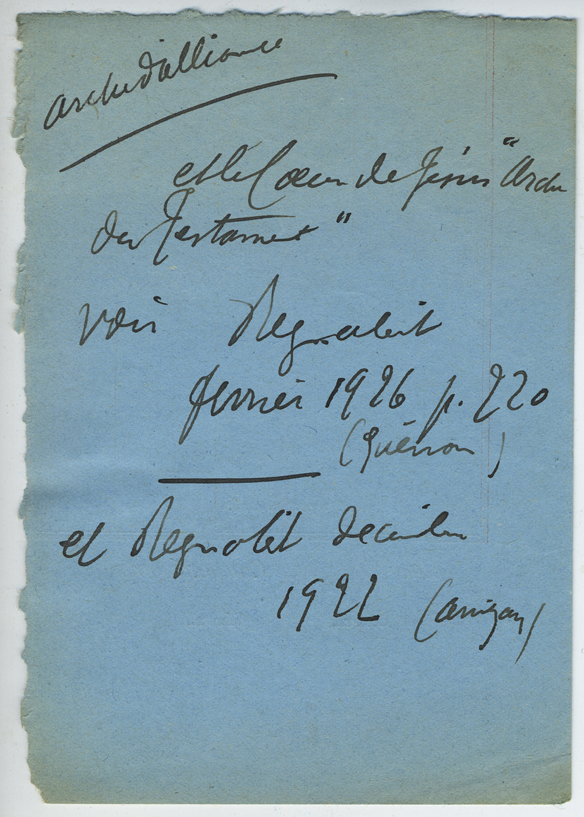 Arche d'alliance
et le Coeur de Jésus "Arche
du Testament"
voir Regnabit
février 1926 p. 220
(Guénon)
et Regnabit décembre
1922 (Anizan)